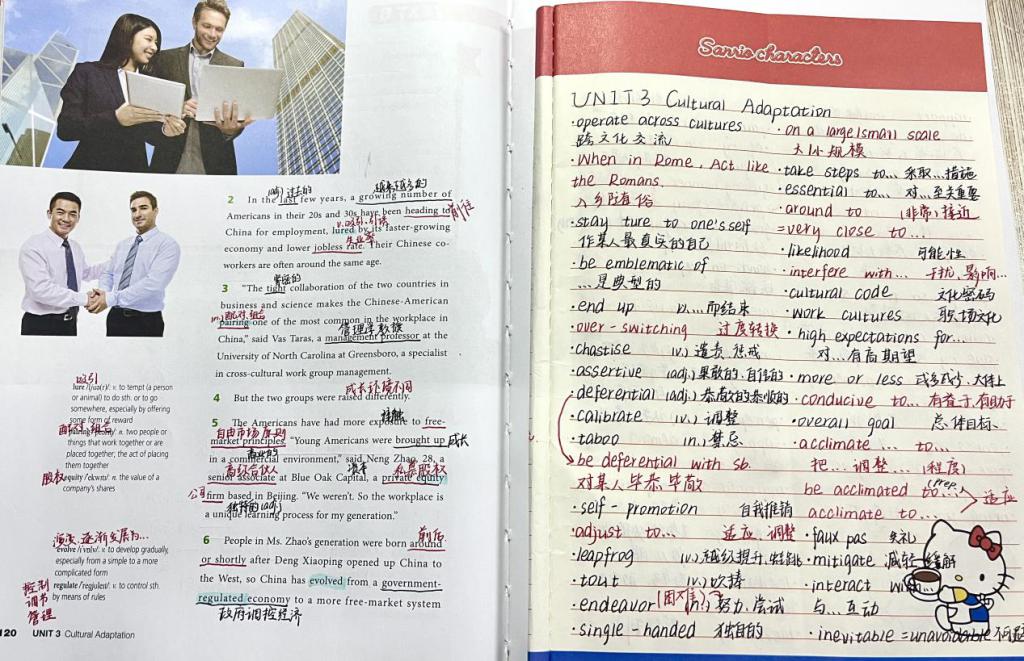 2 In the last few years, a growing number of
Americans in their 20s and 30s have been heading to
China for employment, lured by its faster-growing
economy and lower jobless rate. Their Chinese co-
workers are often around the same age.
3 "The tight collaboration of the two countries in
business and science makes the Chinese-American
pairing one of the most common in the workplace in
China," said Vas Taras, a management professor at the
University of North Carolina at Greensboro, a specialist
in cross-cultural work group management.
4 But the two groups were raised differently.
5 The Americans have had more exposure to free-
market principles. "Young Americans were brought up
in a commercial environment," said Neng Zhao, 28, a
senior associate at Blue Oak Capital, a private equity
firm based in Beijing. "We weren't. So the workplace is
a unique learning process for my generation."
6 People in Ms. Zhao's generation were born around
or shortly after Deng Xiaoping opened up China to
the West, so China has evolved from a government-
regulated economy to a more free-market system
越来越多的
前往
失业率
紧密的
配对,组合
管理学教授
成长环境不同
接触
自由市场原则
成长
商业的
高级合伙人
私募股权
公司
独特的(adj)
前后
政府调控经济
吸引
v. to tempt (a person
or animal) to do sth. or to go
somewhere, especially by offering
some form of reward
配对,组合
n. two people or
things that work together or are
placed together; the act of placing
them together
股权
equity /'ekwəti/ n. the value of a
company's shares
演变,逐渐发展为...
evolve v. to develop gradually,
especially from a simple to a more
complicated form
控制
调节
管理
regulate v. to control sth.
by means of rules
120 UNIT 3 Cultural Adaptation
Sanrio characters
UNIT3 Cultural Adaptation
·operate across cultures
跨文化交流
·When in Rome, Act like
the Romans.
入乡随俗
·stay ture to one's self
作某人最真实的自己
·be emblematic of
...是典型的
·end up 以...而结束
·over-switching 过度转换
·chastise (v.) 谴责,惩戒
·assertive (adj.) 果敢的,自信的
·deferential (adj.) 恭敬的
·calibrate (v.) 调整
·taboo (n.) 禁忌
be deferential with sb.
对某人毕恭毕敬
·self-promotion 自我推销
·adjust to... 适应,调整
·leapfrog (v.)
·tout (v.) 吹捧
·endeavor (困难) (n.) 努力,尝试
·single-handed 独自的
·on a large/small scale
大/小规模
·take steps to... 采取...措施
·essential to... 对...至关重要
·around to (非常)接近
=very close to...
·likelihood 可能性
·interfere with... 干扰,影响...
·cultural code 文化密码
·work cultures 职场文化
·high expectations for...
对...有高期望
·more or less 或多或少,大体上
·conducive to... 有益于,有助于
·overall goal 总体目标
·acclimate ... to...
把...调整...(程度)
be acclimated to... (prep.)
acclimate to... 适应
·faux pas 失礼
·mitigate 减轻,缓解
·interact with
与...互动
·inevitable = unavoidable